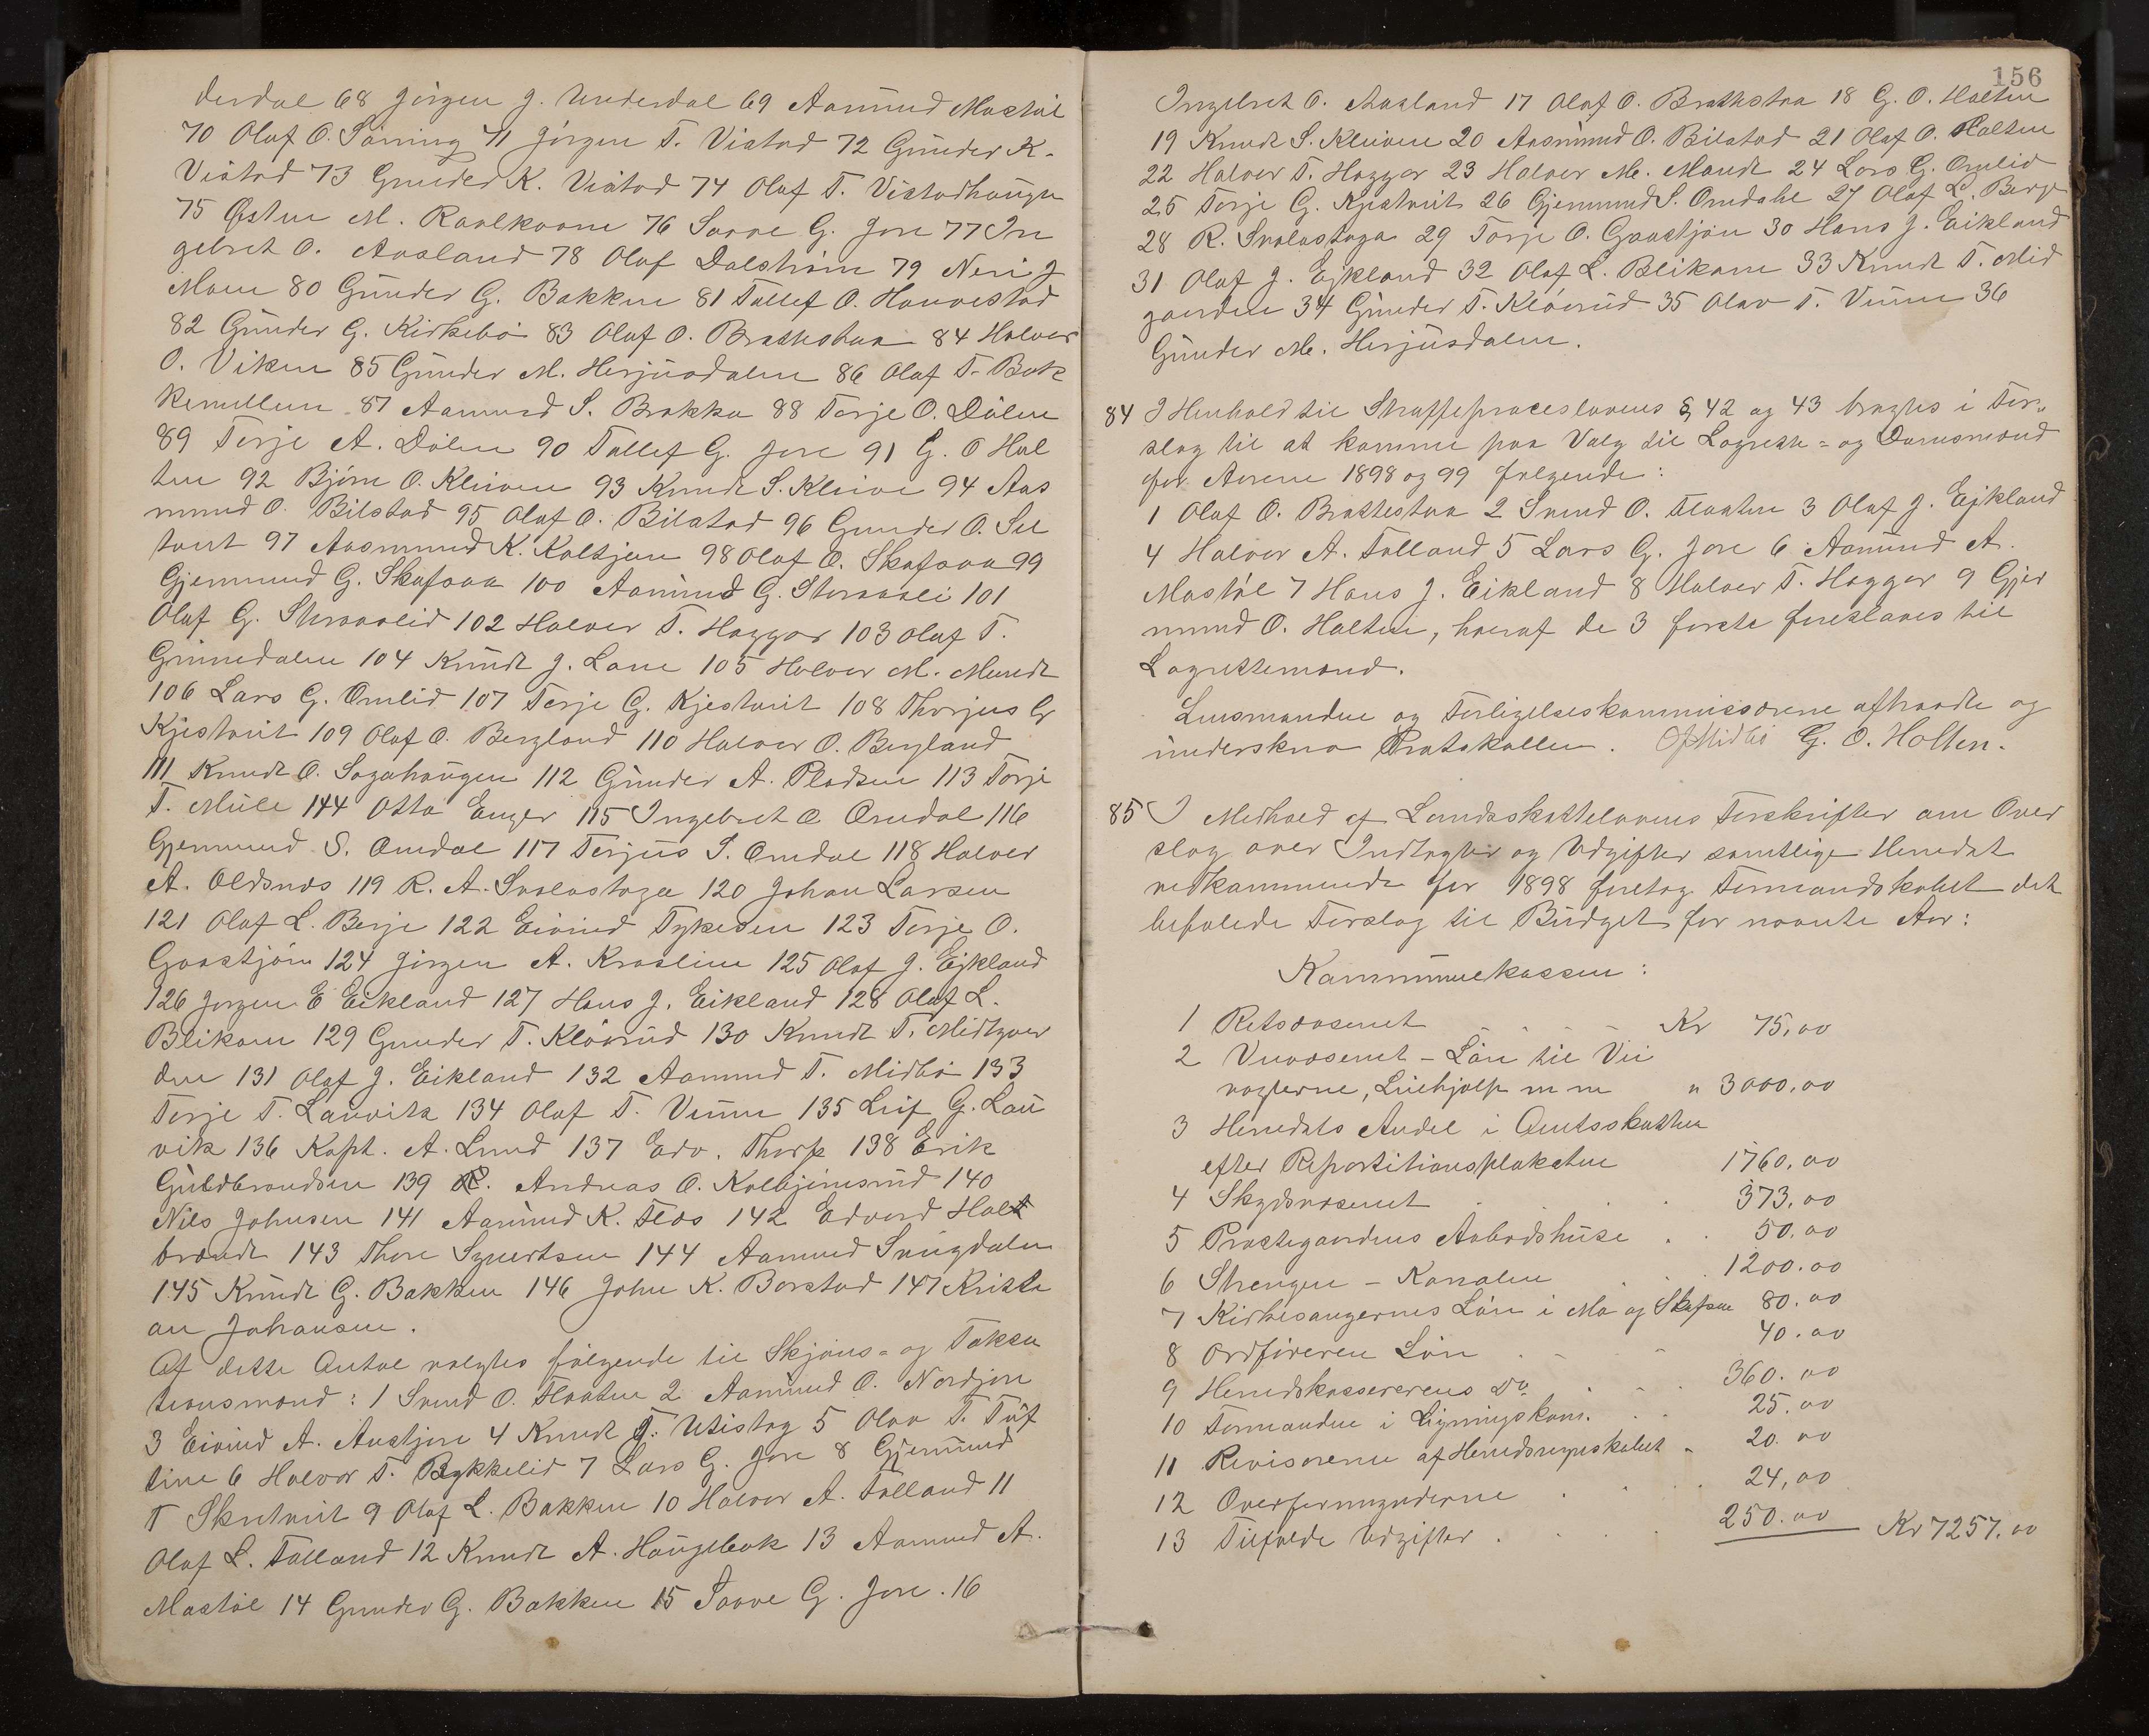 derdal 68 Jörgen J. Underdal 69 Aamund Mostöl
70 Olaf O. Söning 71 Jörgen T. Vistad 72 Gunder K.
Vistad 73 Gunder K. Vistad 74 Olaf T. Vistadhaugen
75 Østen M. Ravlkaane 76 Saave G. Jore 77 In
gebret O. Aasland 78 Olaf Dalström 79 Neri J
Moen 80 Gunder G. Bakken 81 Tallef O. Haavestad
82 Gunder G. Kirkebö 83 Olaf O. Brattestaa 84 Halvor
O. Viken 85 Gunder M. Hesjusdalen 86 Olaf T. Bak
kemellem 87 Aamund S. Brokka 88 Terje O. Dölen
89 Terje A. Dölen 90 Tallef G. Jore 91 G. O Hol
ten 92 Björn O. Kleiven 93 Knudt S. Kleive 94 Aas
mund O. Bilstad 95 Olaf O. Bilstad 96 Gunder O. Sel
tveit 97 Aasmund K. Koltjern 98 Olaf O. Skafsaa 99
Gjermund G. Skafsaa 100 Aamund G. Straaoli 101
Olaf G. Straaolid 102 Halvor T. Heggar 103 Olaf T.
Grimedalen 104 Knudt J. Lane 105 Halvor M. Mandt
106 Lars G. Omlid 107 Terje G. Kjestveit 108 Thorjus G
Kjestveit 109 Olaf O. Bergland 110 Halvor O. Bergland
111 Knudt O. Sagahaugen 112 Gunder A. Pladsen 113 Torje
T. Mule 114 Otto Enger 115 Ingebret O Omdal 116
Gjermund S. Omdal 117 Terjus S. Omdal 118 Halvor
A. Oldsnes 119 R. A. Svalastoga 120 Johan Larsen
121 Olaf L. Berje 122 Eivind Tykesen 123 Terje O.
Gaastjön 124 Jörgen A. Kroslien 125 Olaf J. Eikland
126 Jorgen E Eikland 127 Hans J. Eikland 128 Olaf L.
Blikom 129 Gunder T. Klövrud 130 Knudt T. Midtgaar
den 131 Olaf J. Eikland 132 Aamund T. Midbö 133
Terje T. Lauvik 134 Olaf T. Vinne 135 Leif G. Lau
vik 136 Kapt. A. Lund 137 Edv. Thorp 138 Erik
Guldbrandsen 139 Andreas O. Kolbjörnsrud 140
Nils Johnsen 141 Aamund K. Flos 142 Edvard Holt
brandt 143 Thore Syvertsen 144 Aamund Svigdalen
145 Knudt G. Bakken 146 John K. Borstad 147 Kristi
an Johansen.
Af dette Antal valgtes følgende til Skjöns- og Taksa
tionsmænd: 1 Svend O. Flaaten 2 Aamund O. Nordjore
3 Eivind A. Austjore 4 Knudt T. Utistog 5 Olav T. Tuf
tine 6 Halvor T. Rykkelid 7 Lars G. Jore 8 Gjermund
T Skretveit 9 Olaf L. Bakken 10 Halvor A. Folland 11
Olaf L. Folland 12 Knudt A. Haugebak 13 Aamund A.
Mostöl 14 Gunder G. Bakken 15 Saave G. Jore. 16
156
Ingebret O. Aasland 17 Olaf O. Brattestaa 18 G. O. Holten
19 Knudt S. Kleiven 20 Aasmund O. Bilstad 21 Olaf O. Holten
22 Halvor T. Heggar 23 Halvor M. Mandt 24 Lars G. Omlid
25 Terje G. Kjestveit 26 Gjermund S. Omdahl 27 Olaf L. Berge
28 R. Svalastoga 29 Torje O. Gaastjön 30 Hans J. Eikland
31 Olaf J. Eikland 32 Olaf L. Blikom 33 Knudt T. Mid
gaarden 34 Gunder T. Klövrud 35 Olav T. Vinne 36
Gunder M. Hesjusdalen.
84 I Henhold til Straffeproceslovens § 42 og 43 bragtes i For-
slag til at komme paa Valg til Lagrette- og Domsmænd
for Aarene 1898 og 99 følgende:
1 Olaf O. Brattestaa 2 Svend O. Flaaten 3 Olaf J. Eikland
4 Halvor A. Folland 5 Lars G. Jore 6 Aamund A.
Mostöl 7 Hans J. Eikland 8 Halvor T. Heggar 9 Gjer
mund O. Holten, hvoraf de 3 første foreslaaes til
Lagrettemænd.
Lensmanden og Forligelseskommissærene aftraadte og
underskrev Protokollen. O J Midbö G. O. Holten.
85 I Medhold af Landsskattelovens Forskrifter om Over
slag over Indtægter og Udgifter samtlige Herredet
vedkommende for 1898 foretog Formandskabet det
befalede Forslag til Budget for nævnte Aar:
Kommunekassen:
1 Retsvæsenet Kr 75,00
2 Veivæsenet - Løn til Vei
vogterne, Leiehjælp m m " 3000,00
3 Herredets Andel i Amtsskatten
efter Repartitionsplakaten 1760,00
4 Skydsvæsenet 373,00
5 Præstegaardens Aabodshuse 50.00
6 Strengen - Kanalen 1200.00
7 Kirkesangernes Løn i Mo og Skafsaa 80.00
8 Ordføreren Løn 40.00
9 Herredskassererens Do 360.00
10 Formanden i Ligningskom. 25.00
11 Revisorerne af Herredsregnskabet 20.00
12 Overformynderne 24,00
13 Tilfælde Udgifter 250.00 Kr 7257.00